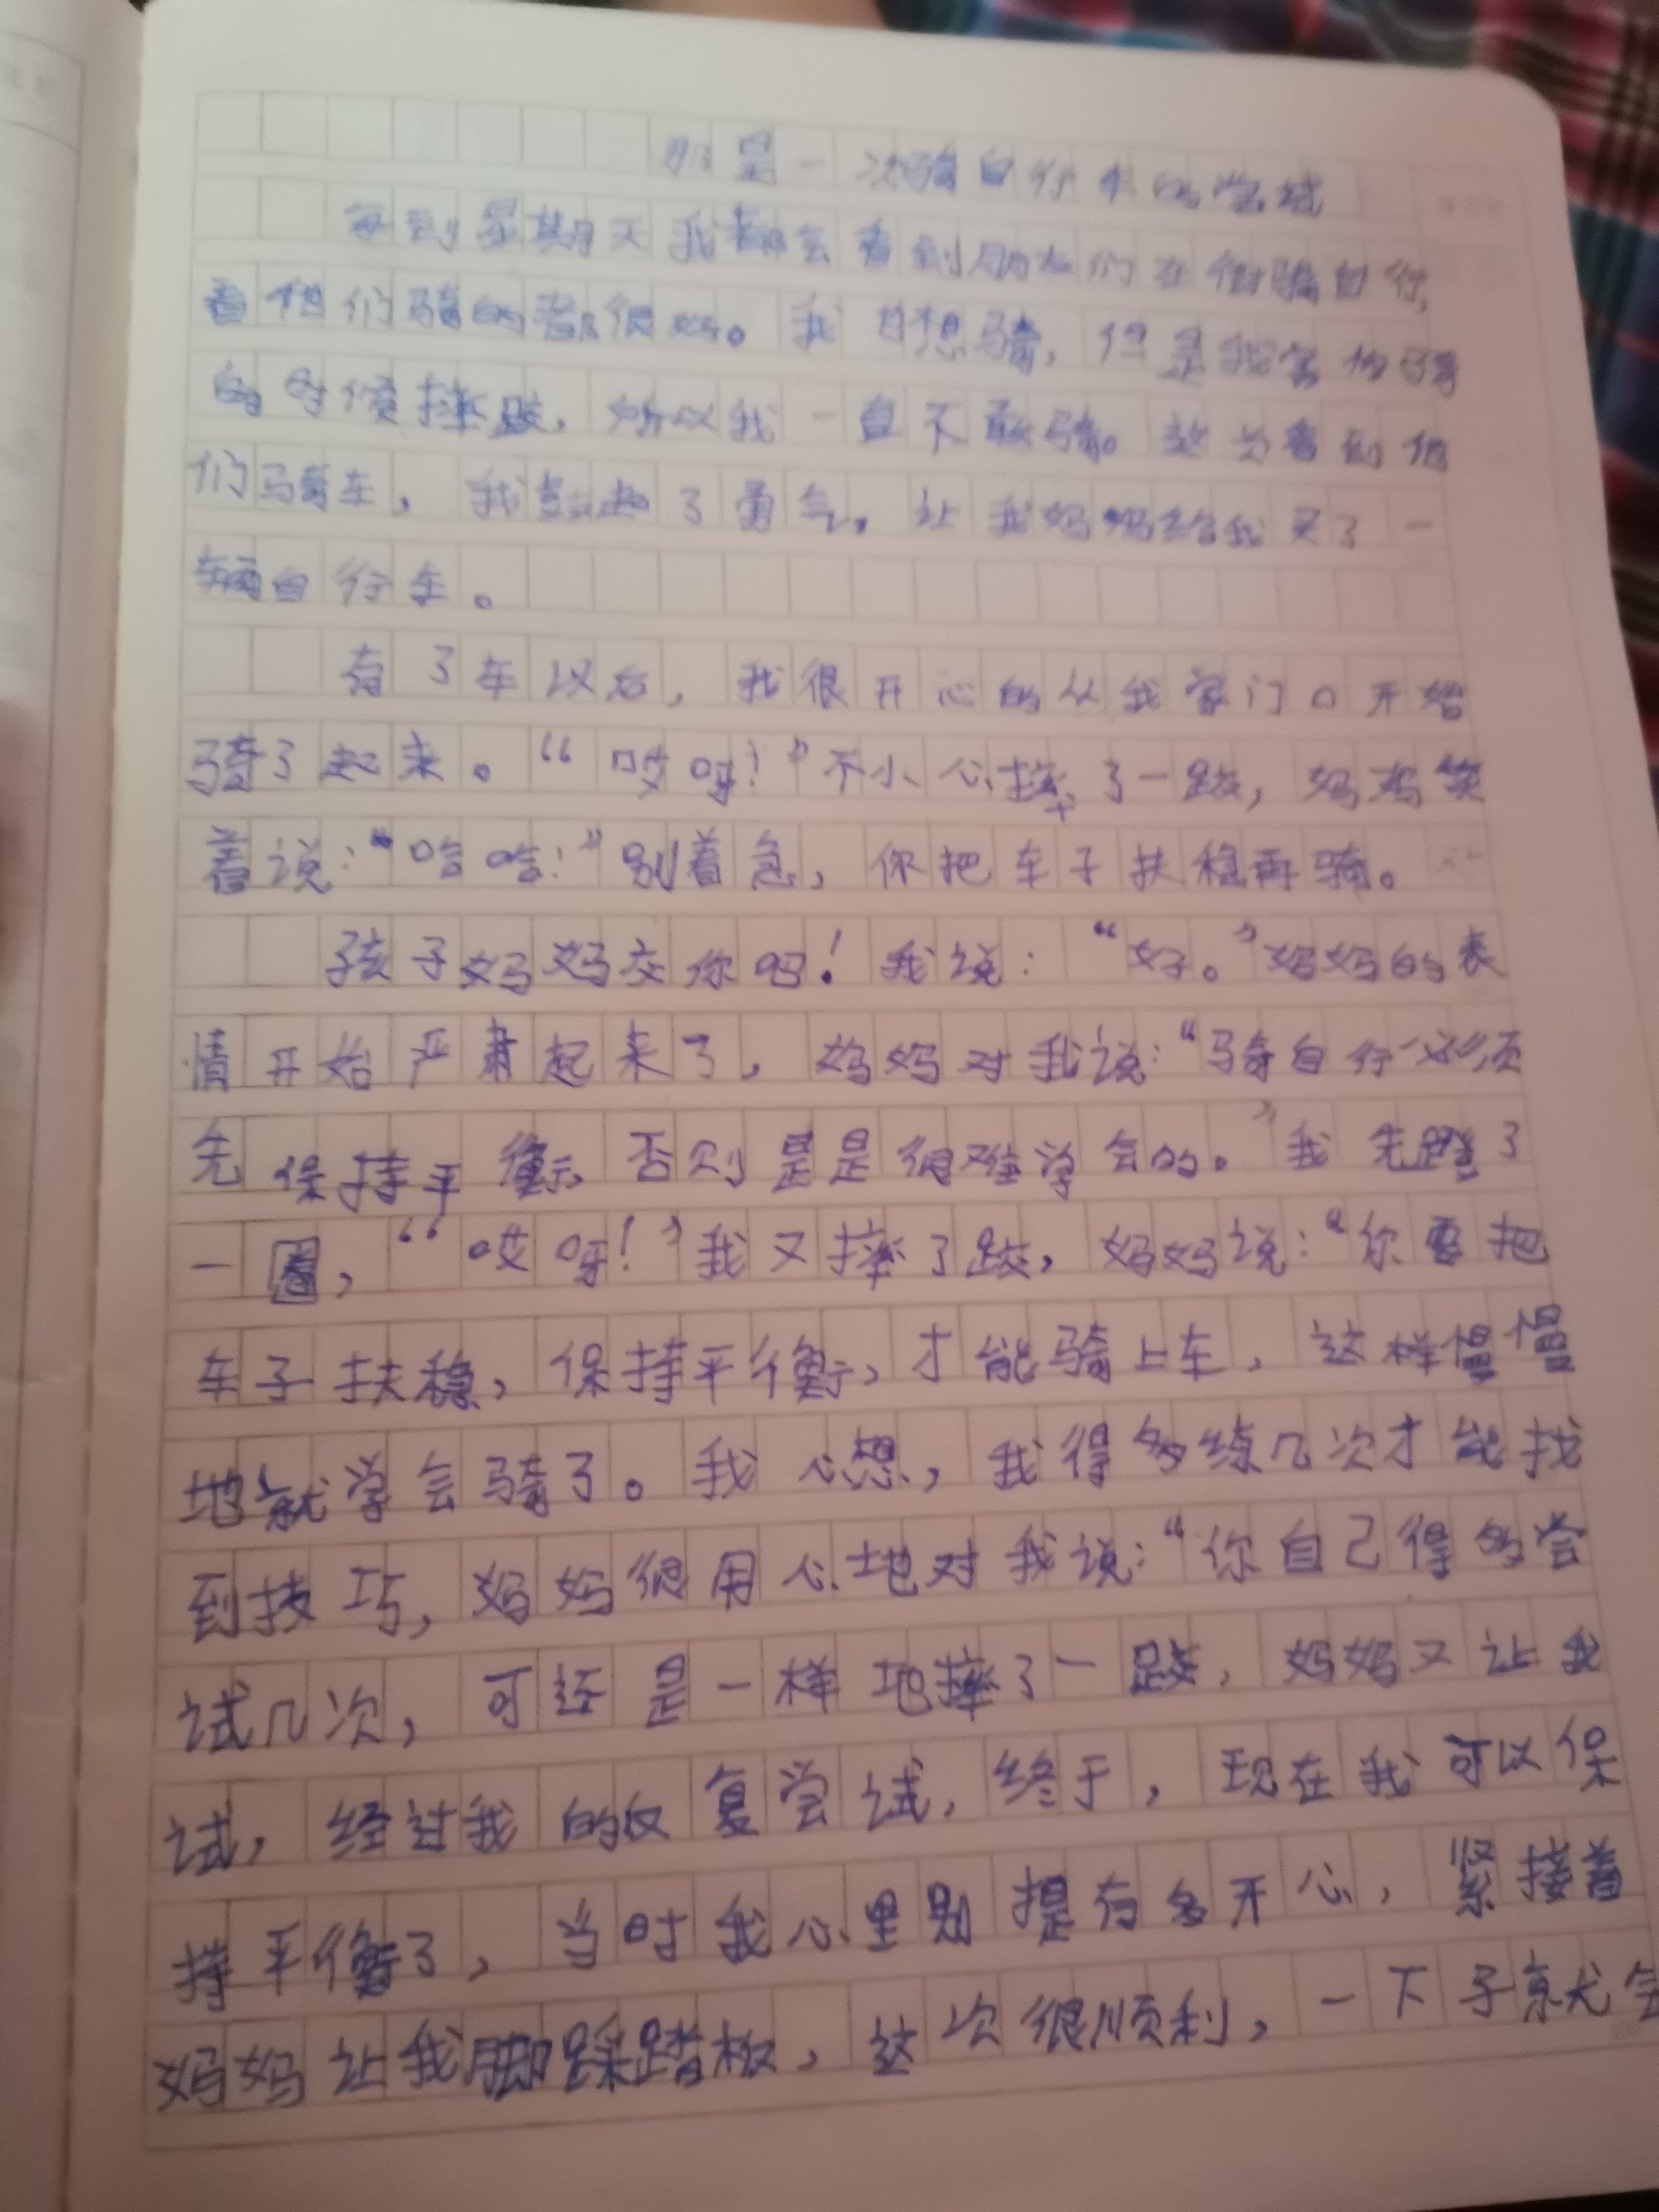 那是一次骑自行车的尝试
每到星期天我都会看到朋友们在街骑自行,
看他们骑的都很好。我也想骑,但是我害怕骑
的时候摔跤,所以我一直不敢骑。这次看到他
们骑车,我鼓起了勇气,让我妈妈给我买了一
辆自行车。
有了车以后,我很开心的从我家门口开始
骑了起来。“哎呀!”不小心摔了一跤,妈妈笑
着说:“哈哈!”别着急,你把车子扶稳再骑。
孩子妈妈交你吧!我说:“好。”妈妈的表
情开始严肃起来了,妈妈对我说:“骑自行必须
先保持平衡,否则是是很难学会的。”我先蹬了
一圈,“哎呀!”我又摔了跤,妈妈说:“你要把
车子扶稳,保持平衡,才能骑上车,这样慢慢
地就学会骑了。我心想,我得多练几次才能找
到技巧,妈妈很用心地对我说:“你自己得多尝
试几次,可还是一样地摔了一跤,妈妈又让我
试,经过我的反复尝试,终于,现在我可以保
持平衡了,当时我心里别提有多开心,紧接着
妈妈让我脚踩踏板,这次很顺利,一下子就会